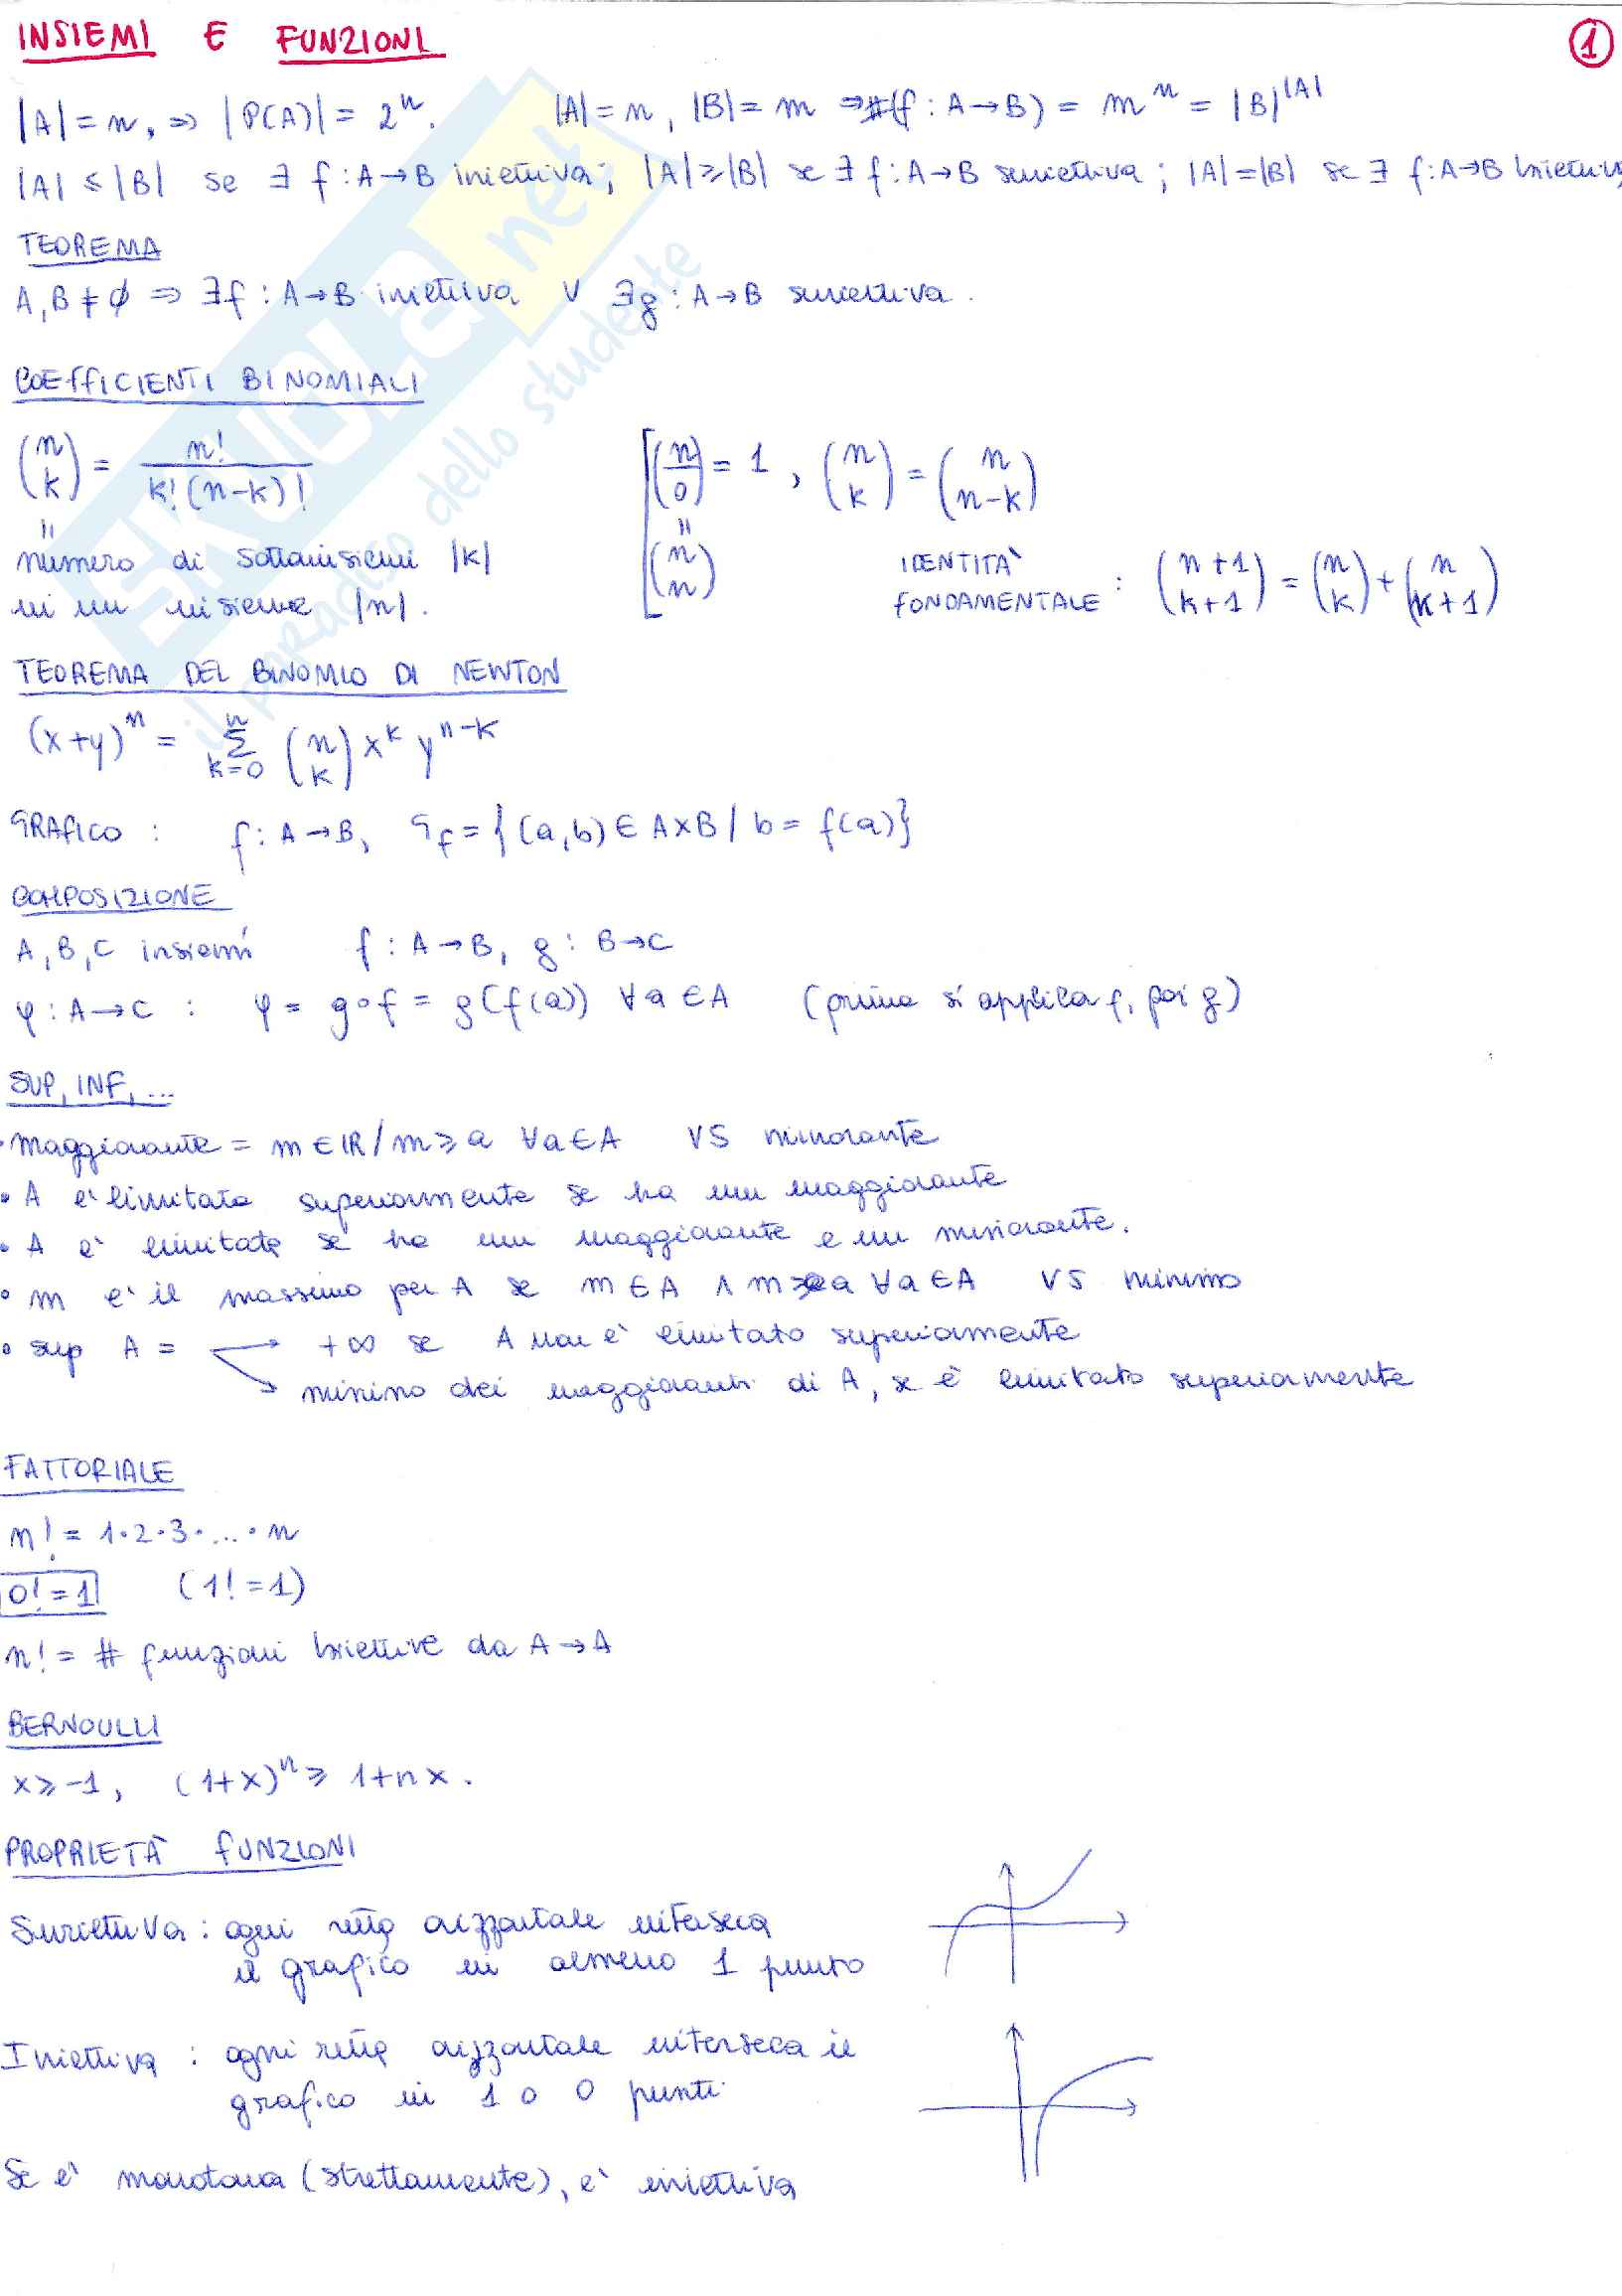 INSIEMI E FUNZIONI ①
|A|=n, ⇒ |P(A)| = 2ⁿ. |A|=n, |B|=m ⇒ #(f: A→B) = mⁿ = |B|^|A|
|A| ≤ |B| se ∃ f: A→B iniettiva; |A| ≥ |B| se ∃ f: A→B suriettiva; |A|=|B| se ∃ f: A→B biettiva
TEOREMA
A, B ≠ ∅ ⇒ ∃f: A→B iniettiva ∨ ∃g: A→B suriettiva.
COEFFICIENTI BINOMIALI
(n k) = n! / k!(n-k)! [(n 0) = 1, (n k) = (n n-k)
= numero di sottoinsiemi |k| = (n n) IDENTITÀ
in un insieme |n|. FONDAMENTALE: (n+1 k+1) = (n k) + (n k+1)
TEOREMA DEL BINOMIO DI NEWTON
(x+y)ⁿ = Σ_{k=0}^{n} (n k) x^k y^{n-k}
GRAFICO: f: A→B, G_f = {(a,b) ∈ A×B / b = f(a)}
COMPOSIZIONE
A, B, C insiemi f: A→B, g: B→C
φ: A→C: φ = g∘f = g(f(a)) ∀a ∈ A (prima si applica f, poi g)
SUP, INF, ...
• Maggiorante = m ∈ ℝ / m ≥ a ∀a ∈ A VS minorante
• A è limitato superiormente se ha un maggiorante
• A è limitato se ha un maggiorante e un minorante.
• m è il massimo per A se m ∈ A ∧ m ≥ a ∀a ∈ A VS minimo
• sup A = → +∞ se A non è limitato superiormente
↘ minimo dei maggioranti di A, se è limitato superiormente
FATTORIALE
n! = 1·2·3·...·n
0! = 1 (1! = 1)
n! = # funzioni biettive da A→A
BERNOULLI
x ≥ -1, (1+x)ⁿ ≥ 1+nx.
PROPRIETÀ FUNZIONI
Suriettiva: ogni retta orizzontale interseca
il grafico in almeno 1 punto
Iniettiva: ogni retta orizzontale interseca il
grafico in 1 o 0 punti
Se è monotona (strettamente), è iniettiva
SKUOLA.net
il paradiso dello studente